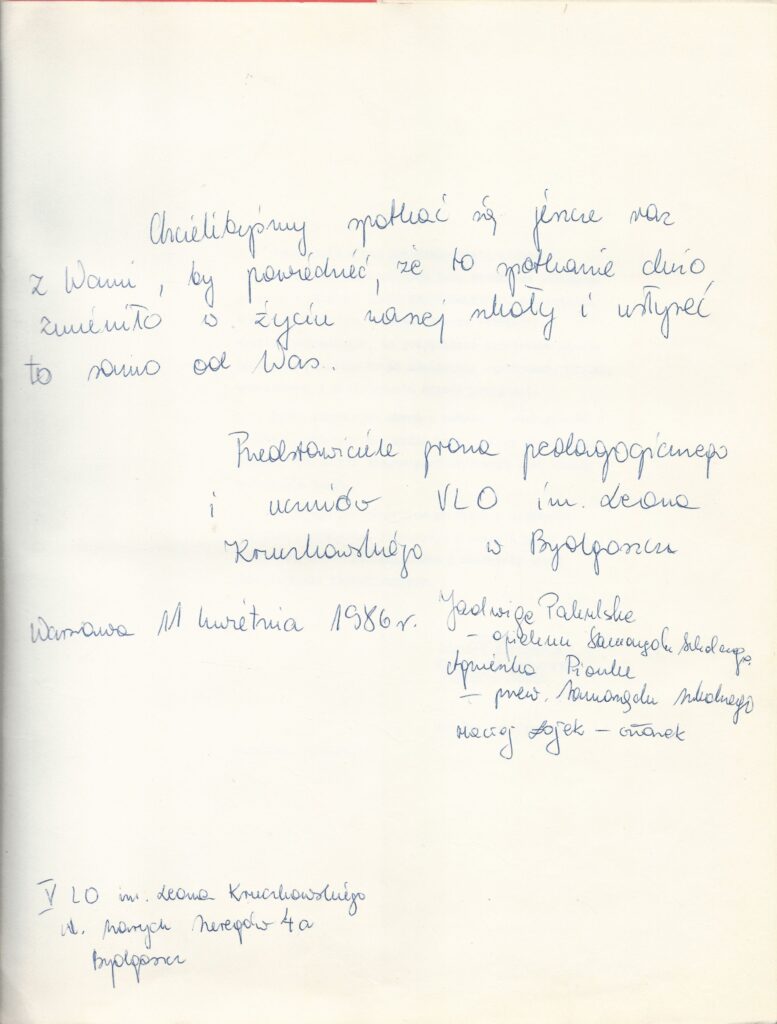 Chcielibyśmy spotkać się jeszcze raz
z Wami, by powiedzieć, że to spotkanie dużo
zmieniło w życiu naszej szkoły i usłyszeć
to samo od Was..
Przedstawiciele grona pedagogicznego
i uczniów VLO im. Leona
Kruczkowskiego w Bydgoszczy
Warszawa 11 kwietnia 1986 r.
Jadwiga Pakulska
– opiekun Samorządu Szkolnego
Agnieszka Pionke
– przew. Samorządu szkolnego
Maciej Łojek – członek
V LO im. Leona Kruczkowskiego
ul. Szarych Szeregów 4a
Bydgoszcz